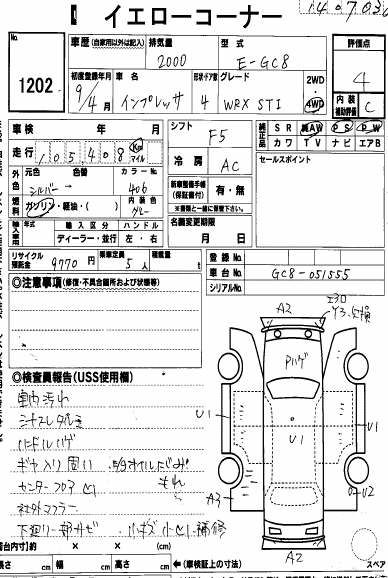 イエローコーナー
No. 1202
車歴 (自家用以外は記入) 排気量 型式 評価点
2000 E-GC8 4
初度登録年月 車名 形状・ドア数 グレード 2WD 内装(補助評価) C
9/4月 インプレッサ 4 WRX STI 4WD
車検 年 月 シフト F5 純正品 SR AW PS PW
カワ TV ナビ エアB
走行 105408 Km マイル
冷房 AC セールスポイント
外色 元色 色替 カラーNo.
シルバー → 406
新車整備手帳(保証書付) 有・無
※書類と一緒に保管下さい。
燃料 ガソリン・軽油・( ) 内装色 グレー
輸入車用 年式 輸入区分 ハンドル
ディーラー・並行 左・右
名義変更期限 月 日
リサイクル預託金 9770円 乗車定員 5人 積載量 t
登録No.
車台No. GC8-051555
シリアルNo.
◎注意事項(修復・不具合箇所および状態等)
A2
Pハゲ
U1 U1 U1
A3 U2
A2
◎検査員報告(USS使用欄)
車内汚れ
ハンドルハゲ
ギヤ入り固い
センターフロア凹
もれ
社外マフラー
下廻り一部サビ 小キズ 小凹 補修
車台内寸)約 × × (cm)
長さ cm 幅 cm 高さ cm ←(車検証上の寸法) スペア